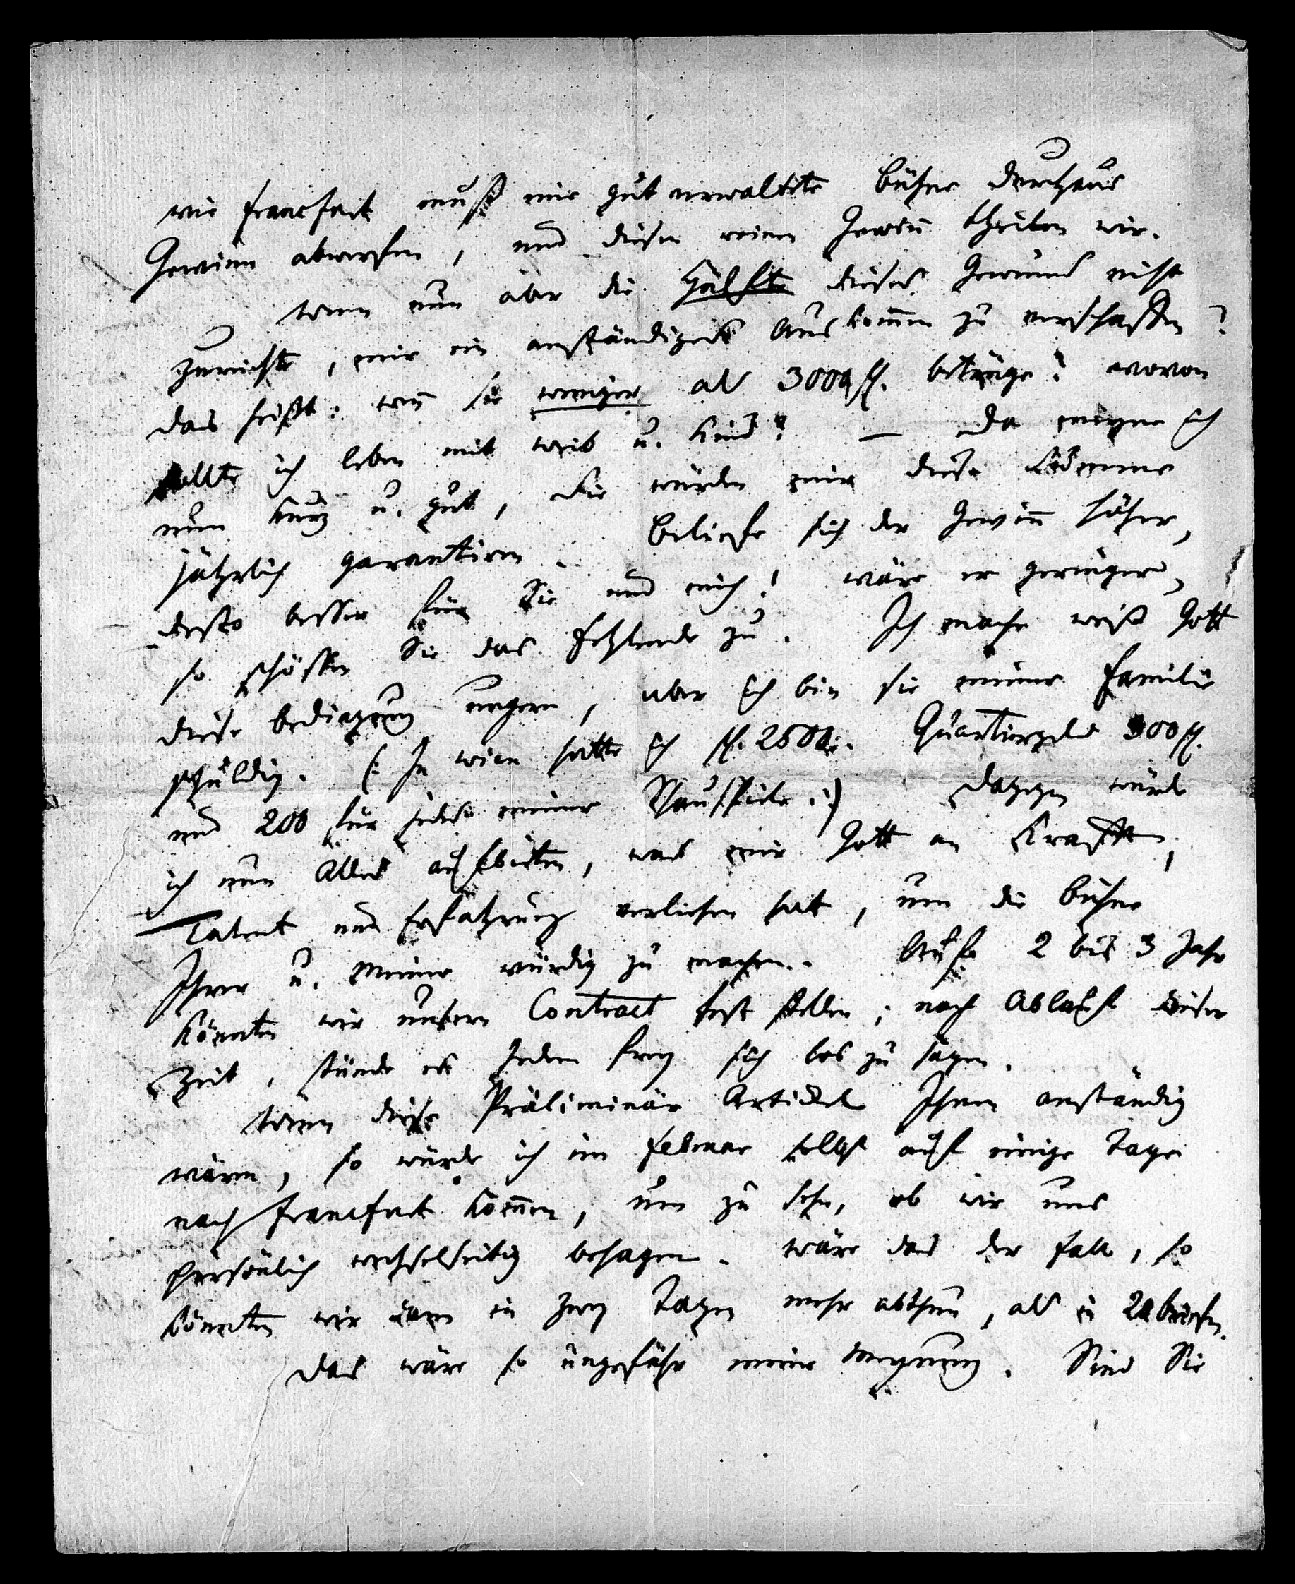 wie Francfurt muß eine gut verwaltete Bühne durchaus
Gewinn abwerfen, und diesen reinen Gewinn theilen wir.
Wenn nun aber die Hälfte dieses Gewinns nicht
zureichte, mir ein anständiges Auskom̅en zu verschaffen?
das heißt: wen̅ sie weniger als 3000 fl. betrüge? wovon
sollte ich leben mit Weib u. Kind? — Da meyne ich
nun kurz u. gut, Sie würden mir diese Summe
jährlich garantiren. Beliefe sich der Gewin̅ höher,
desto besser für Sie und mich! wäre er geringer,
so schössen Sie das Fehlende zu. Ich mache weiß Gott
diese Bedingung ungern, aber ich bin sie meiner Familie
schuldig. (: In Wien hatte ich fl. 2500. Quartiergeld 300 fl.
und 200 für jedes meiner Schauspiele :) Dagegen würde
ich nun Alles aufbieten, was mir Gott an Kraft,
Talent und Erfahrung verliehen hat, um die Bühne
Ihrer u. Meiner würdig zu machen. Auf 2 bis 3 Jahr
könnten wir unsern Contract fest stellen; nach Ablauf dieser
Zeit, stünde es Jedem frey sich los zu sagen.
Wenn diese Präliminär Artickel Ihnen anständig
wären, so würde ich im Februar selbst auf einige Tage
nach Francfurt kom̅en, um zu sehn, ob wir uns
persönlich wechselseitig behagen. Wäre das der Fall, so
könnten wir dann in zwey Tagen mehr abthun, als in 20 Briefen.
Das wäre so ungefähr meine Meynung. Sind Sie